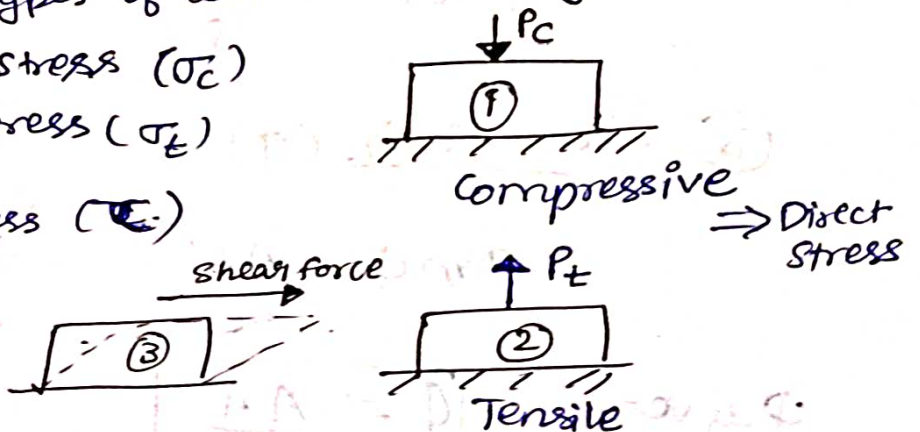 ypes of
stress (σc)
ress (σt)
ss (τ)
Pc
1
Compressive
⇒ Direct
Stress
shear force
3
Pt
2
Tensile